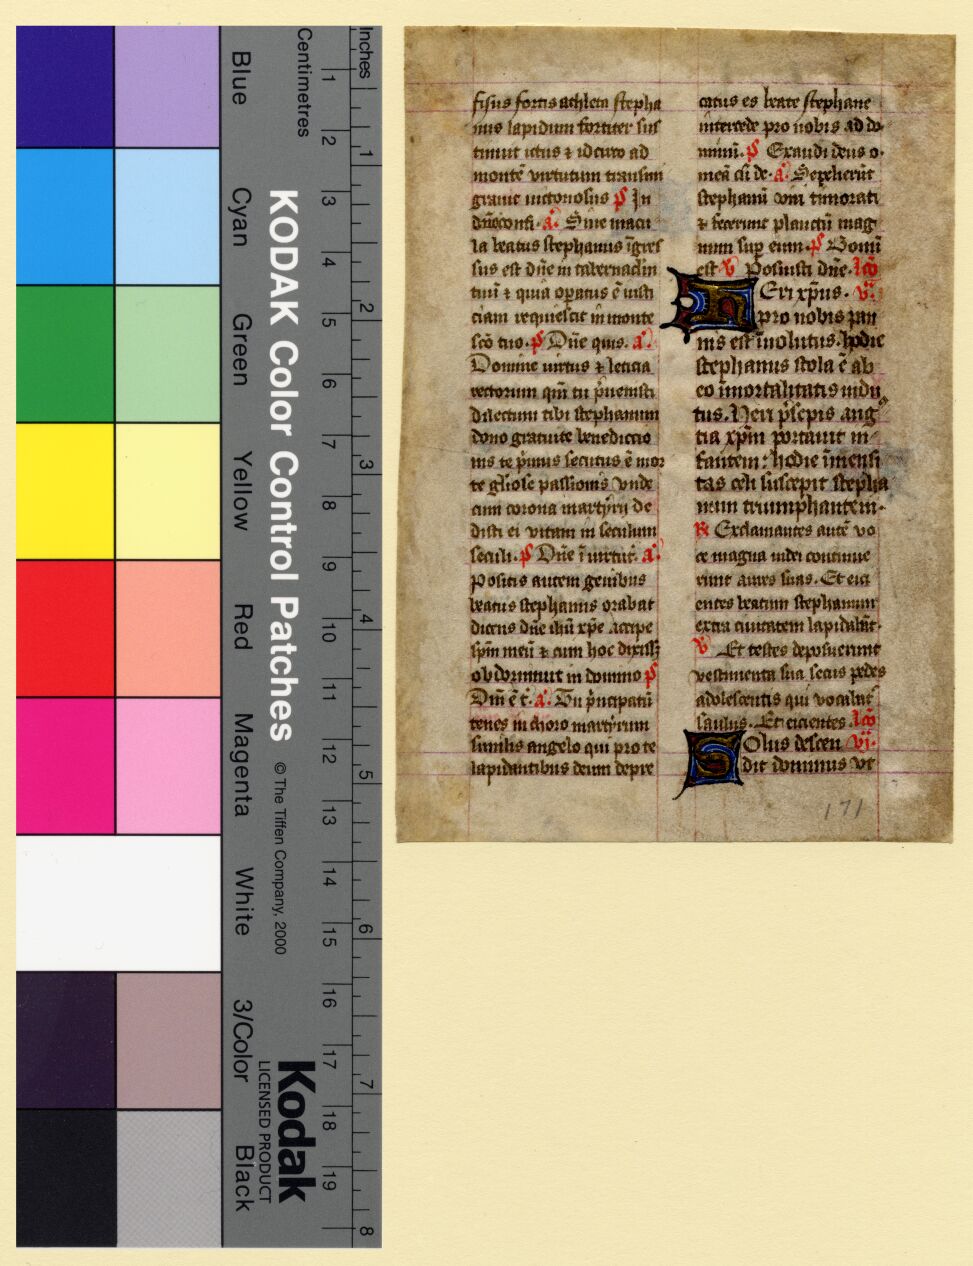 Inches
Centimetres
1 2 3 4 5 6 7 8 9 10 11 12 13 14 15 16 17 18 19
1 2 3 4 5 6 7 8
KODAK Color Control Patches
© The Tiffen Company, 2000
Kodak
LICENSED PRODUCT
Blue
Cyan
Green
Yellow
Red
Magenta
White
3/Color
Black
fisus fortis athleta stepha
nus lapidum fortiter sus
tinuit ictus ⁊ idcirco ad
montē virtutum transmi
gravit victoriosus p̄ In
dn̄o confi. a᷎. Sine macu
la beatus stephanus īgres
sus est dn̄e in tabernaclm
tuū ⁊ quia opatus ē iusti
ciam requiescit in monte
scō tuo. p̄ Dn̄e quis. a᷎.
Domine virtus ⁊ leticia
rectorum qm̄ tu p̄uenisti
dilectum tibi stephanum
dono gratuite benedictio
nis te p̄mus secutus ē mor
te gliose passionis vnde
cum corona martyrij de
disti ei vitam in seculum
seculi. p̄ Dn̄e ī uirtut. a᷎.
Positis autem genibus
beatus stephanus orabat
dicens dn̄e ihū xp̄e accipe
spm̄ meū ⁊ cum hoc dixiss
obdormiuit in domino p̄
Dn̄i ē t. a᷎. Tu p̄ncipatū
tenes in choro martyrum
similis angelo qui pro te
lapidantibus deum depre
catus es beate stephane
intercede pro nobis ad do
minū. p̄ Exaudi deus o
meā cū de. a᷎. Sepelierūt
stephanū viri timorati
⁊ fecerunt planctū mag
num sup eum. p̄ Bonū
est v̄ Posuisti dn̄e. lc̄o
Heri xp̄us. v᷎.
pro nobis pan
nis est īuolutus. hodie
stephanus stola ē ab
eo īmortalitatis indu
tus. Heri p̄sepis ang
tia xp̄m portauit in
fantem: hodie īmensi
tas celi suscepit stepha
num triumphantem.
R Exclamantes autē vo
ce magna iudei continue
runt aures suas. Et eici
entes beatum stephanum
extra ciuitatem lapidabāt.
v̄ Et testes deposuerunt
vestimenta sua secus pedes
adolescentis qui vocabat᷑
saulus. Et eicientes. lc̄o
Solus descen vi.
dit dominus vt
171